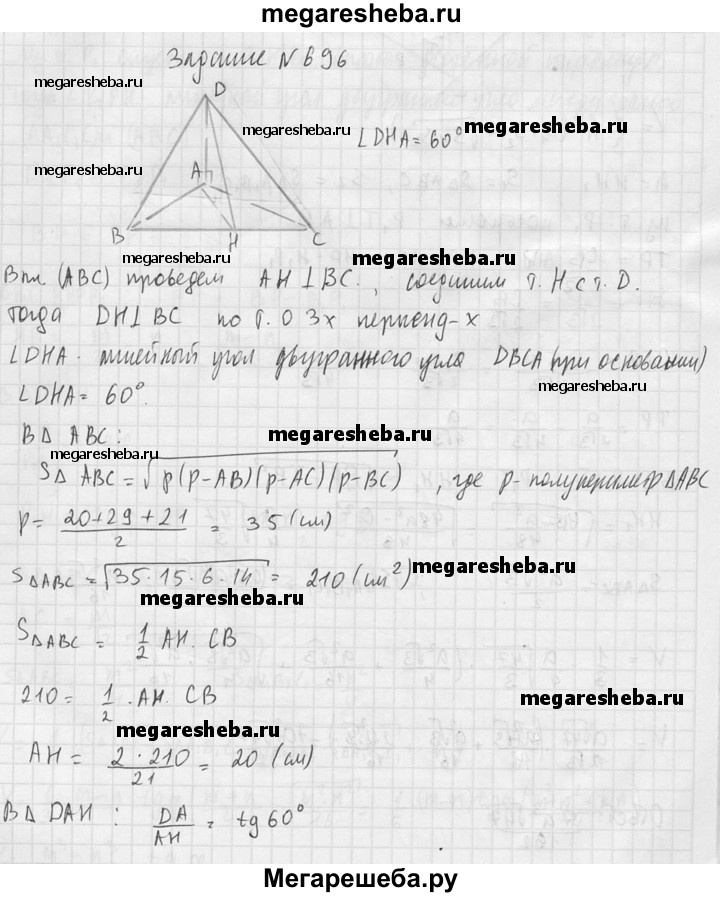 megaresheba.ru
Задание №696
D
megaresheba.ru
megaresheba.ru
∠DHA = 60°
megaresheba.ru
megaresheba.ru
A
B
H
C
megaresheba.ru
В пл. (ABC) проведем AH⊥BC., соединим т. H с т. D.
тогда DH⊥BC по т. о 3х перпенд-х
∠DHA - линейный угол двугранного угла DBCA (при основании)
∠DHA = 60°.
megaresheba.ru
В Δ ABC:
megaresheba.ru
megaresheba.ru
SΔ ABC = √p(p-AB)(p-AC)(p-BC) , где p - полупериметр ΔABC
p = (20+29+21)/2 = 35 (см)
SΔABC = √35·15·6·14 = 210 (см²)
megaresheba.ru
megaresheba.ru
SΔABC = 1/2 AH · CB
210 = 1/2 · AH · CB
megaresheba.ru
megaresheba.ru
AH = (2·210)/21 = 20 (см)
В Δ DAH : DA/AH = tg 60°
megaresheba.ru
megaresheba.ru
Мегарешеба.ру